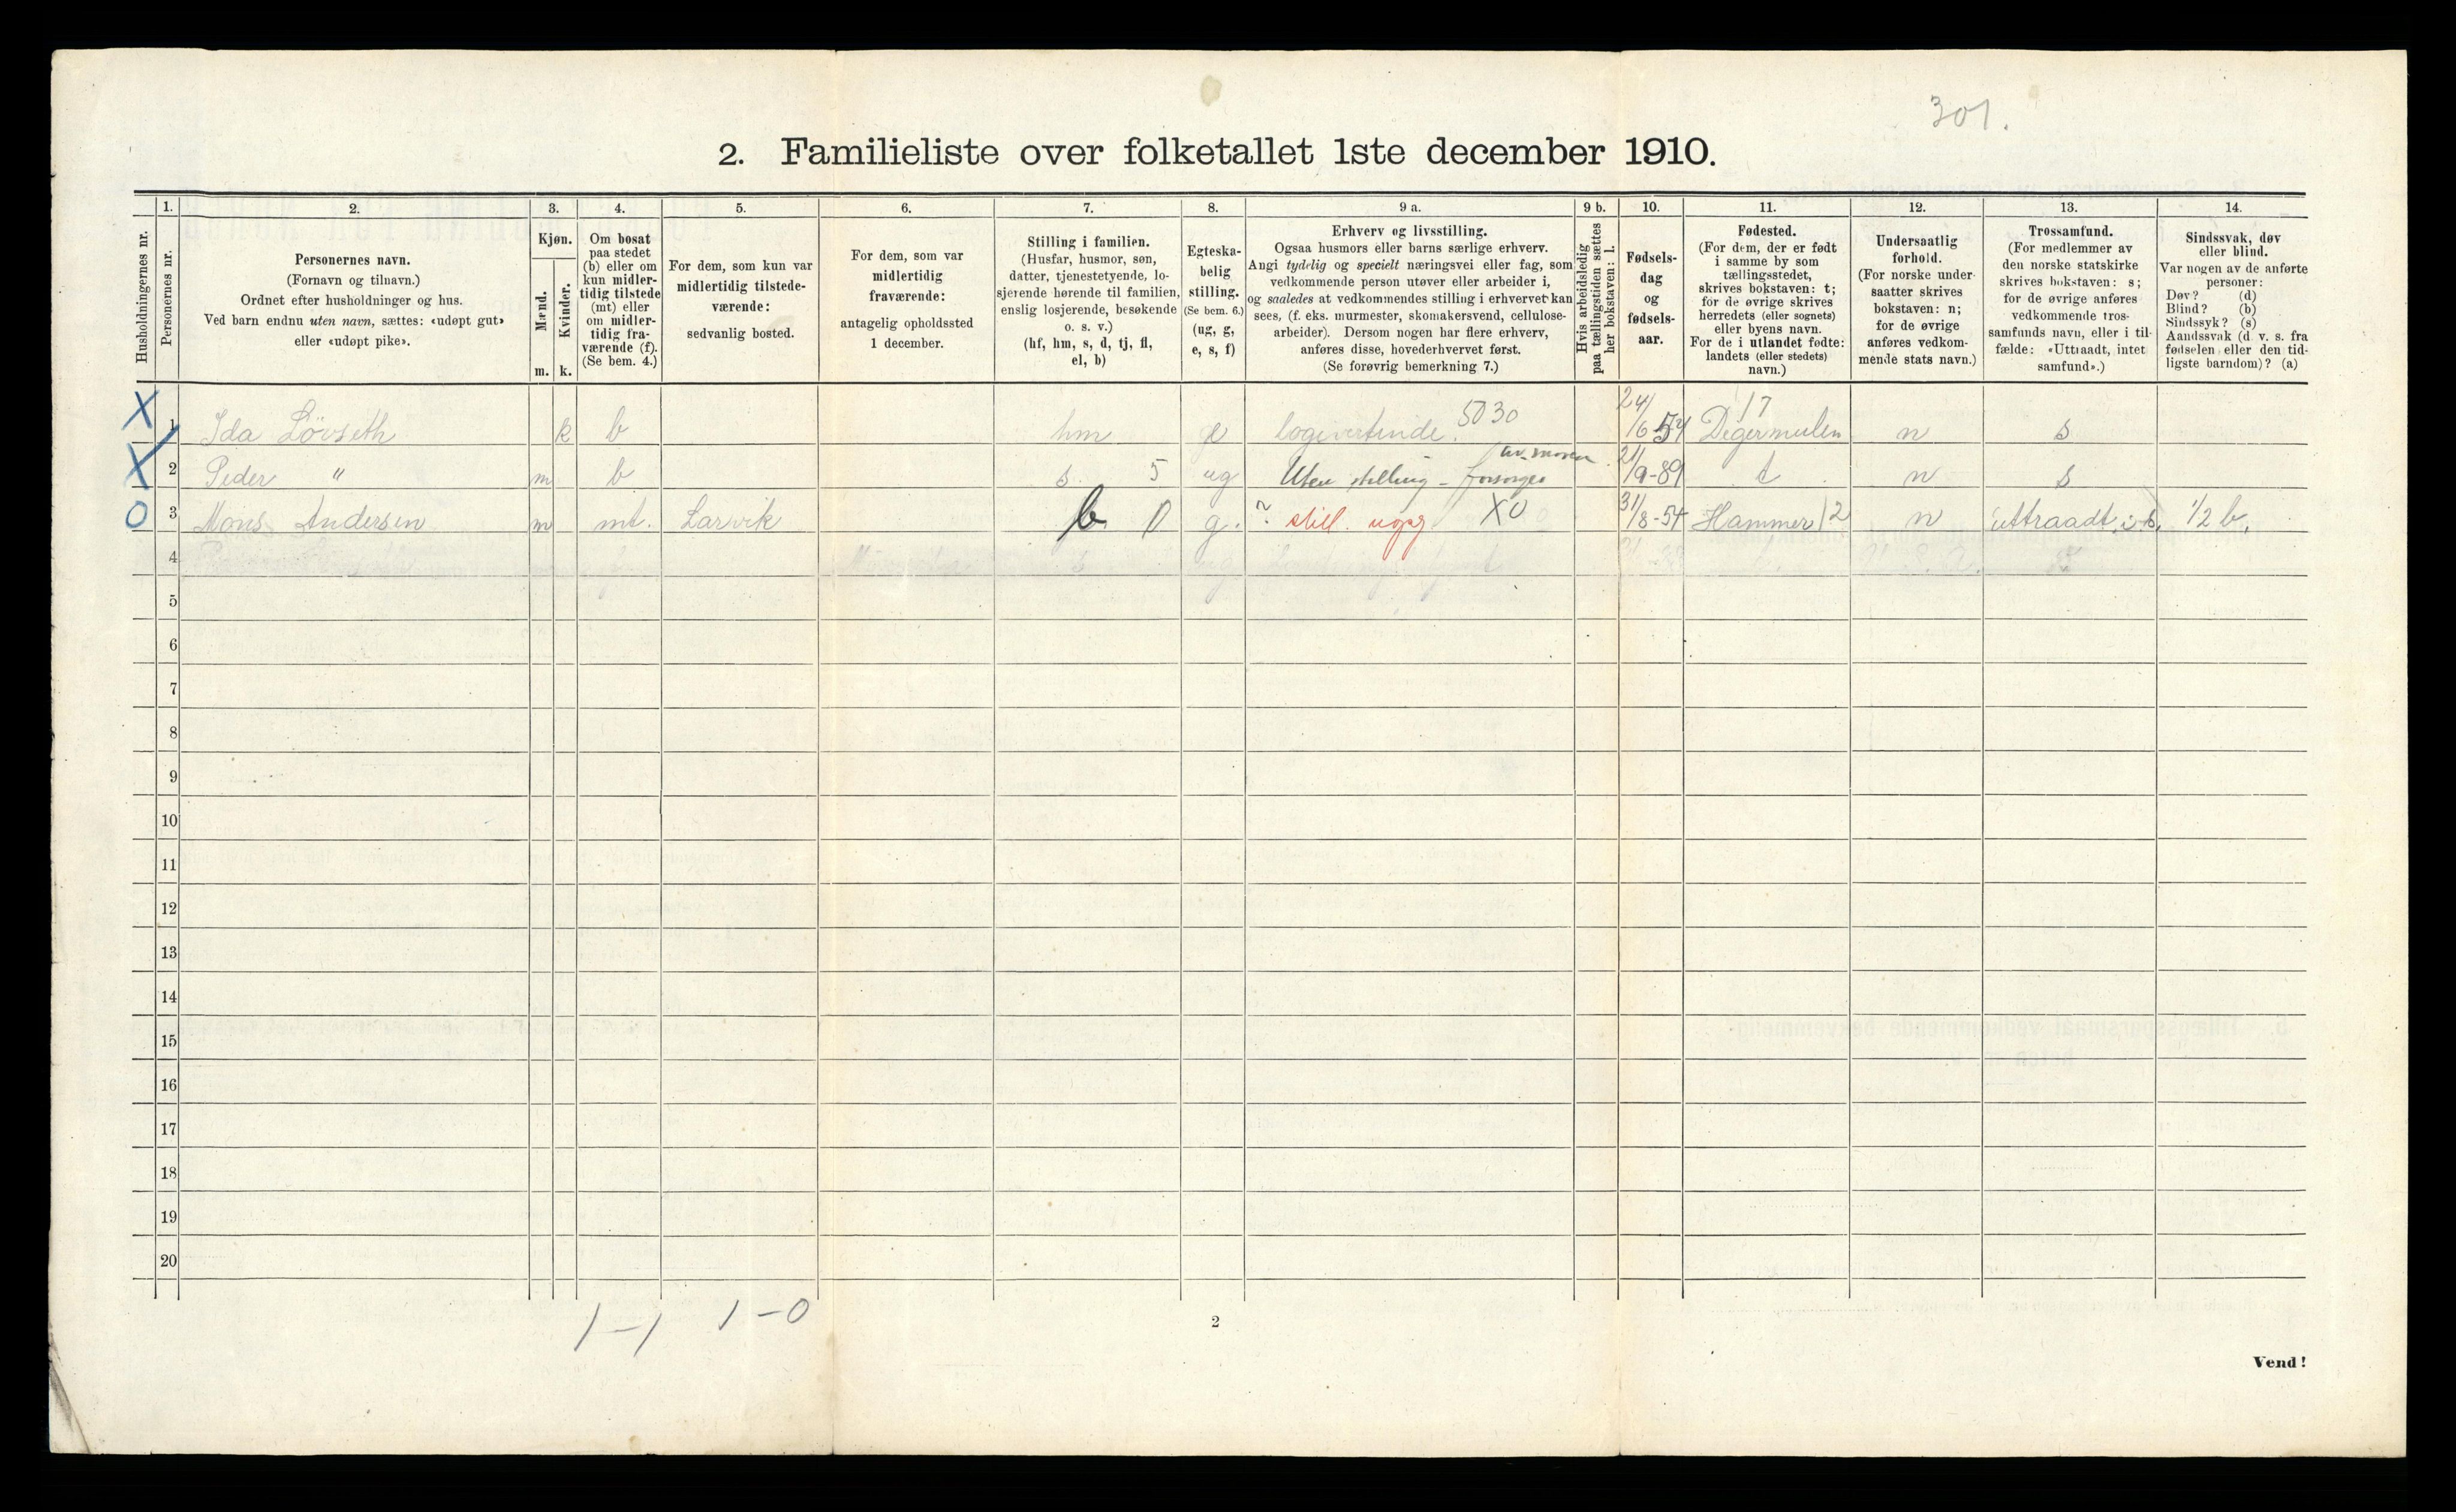 301.
2. Familieliste over folketallet 1ste december 1910.
1. 2. 3. 4. 5. 6. 7. 8. 9 a. 9 b. 10. 11. 12. 13. 14.
Husholdningernes nr.
Personernes nr.
Personernes navn.
(Fornavn og tilnavn.)
Ordnet efter husholdninger og hus.
Ved barn endnu uten navn, sættes: «udøpt gut»
eller «udøpt pike».
Kjøn.
Mænd.
Kvinder.
m. k.
Om bosat
paa stedet
(b) eller om
kun midler-
tidig tilstede
(mt) eller
om midler-
tidig fra-
værende (f).
(Se bem. 4.)
For dem, som kun var
midlertidig tilstede-
værende:
sedvanlig bosted.
For dem, som var
midlertidig
fraværende:
antagelig opholdssted
1 december.
Stilling i familien.
(Husfar, husmor, søn,
datter, tjenestetyende, lo-
sjerende hørende til familien,
enslig losjerende, besøkende
o. s. v.)
(hf, hm, s, d, tj, fl,
el, b)
Egteska-
belig
stilling.
(Se bem. 6.)
(ug, g,
e, s, f)
Erhverv og livsstilling.
Ogsaa husmors eller barns særlige erhverv.
Angi tydelig og specielt næringsvei eller fag, som
vedkommende person utøver eller arbeider i,
og saaledes at vedkommendes stilling i erhvervet kan
sees, (f. eks. murmester, skomakersvend, cellulose-
arbeider). Dersom nogen har flere erhverv,
anføres disse, hovederhvervet først.
(Se forøvrig bemerkning 7.)
Hvis arbeidsledig
paa tællingstiden sættes
her bokstaven: l.
Fødsels-
dag
og
fødsels-
aar.
Fødested.
(For dem, der er født
i samme by som
tællingsstedet,
skrives bokstaven: t;
for de øvrige skrives
herredets (eller sognets)
eller byens navn.
For de i utlandet fødte:
landets (eller stedets)
navn.)
Undersaatlig
forhold.
(For norske under-
saatter skrives
bokstaven: n;
for de øvrige
anføres vedkom-
mende stats navn.)
Trossamfund.
(For medlemmer av
den norske statskirke
skrives bokstaven: s;
for de øvrige anføres
vedkommende tros-
samfunds navn, eller i til-
fælde: «Uttraadt, intet
samfund».)
Sindssvak, døv
eller blind.
Var nogen av de anførte
personer:
Døv? (d)
Blind? (b)
Sindssyk? (s)
Aandssvak (d. v. s. fra
fødselen eller den tid-
ligste barndom)? (a)
X 1 Ida Lövseth k b hm logivertinde. 5030 24/6 54 Degermulen 17 n s
X 2 Peder " m b s. 5 ug Uten stilling - forsørges av moren 21/9-89 t n s
0 3 Mons Andersen m mt. Larvik b 0 g. ? still. uopg X0 31/8-54 Hammer 12 n uttraadt, i s. 1/2 b.
4
5
6
7
8
9
10
11
12
13
14
15
16
17
18
19
20
1-1 1-0
2
Vend!